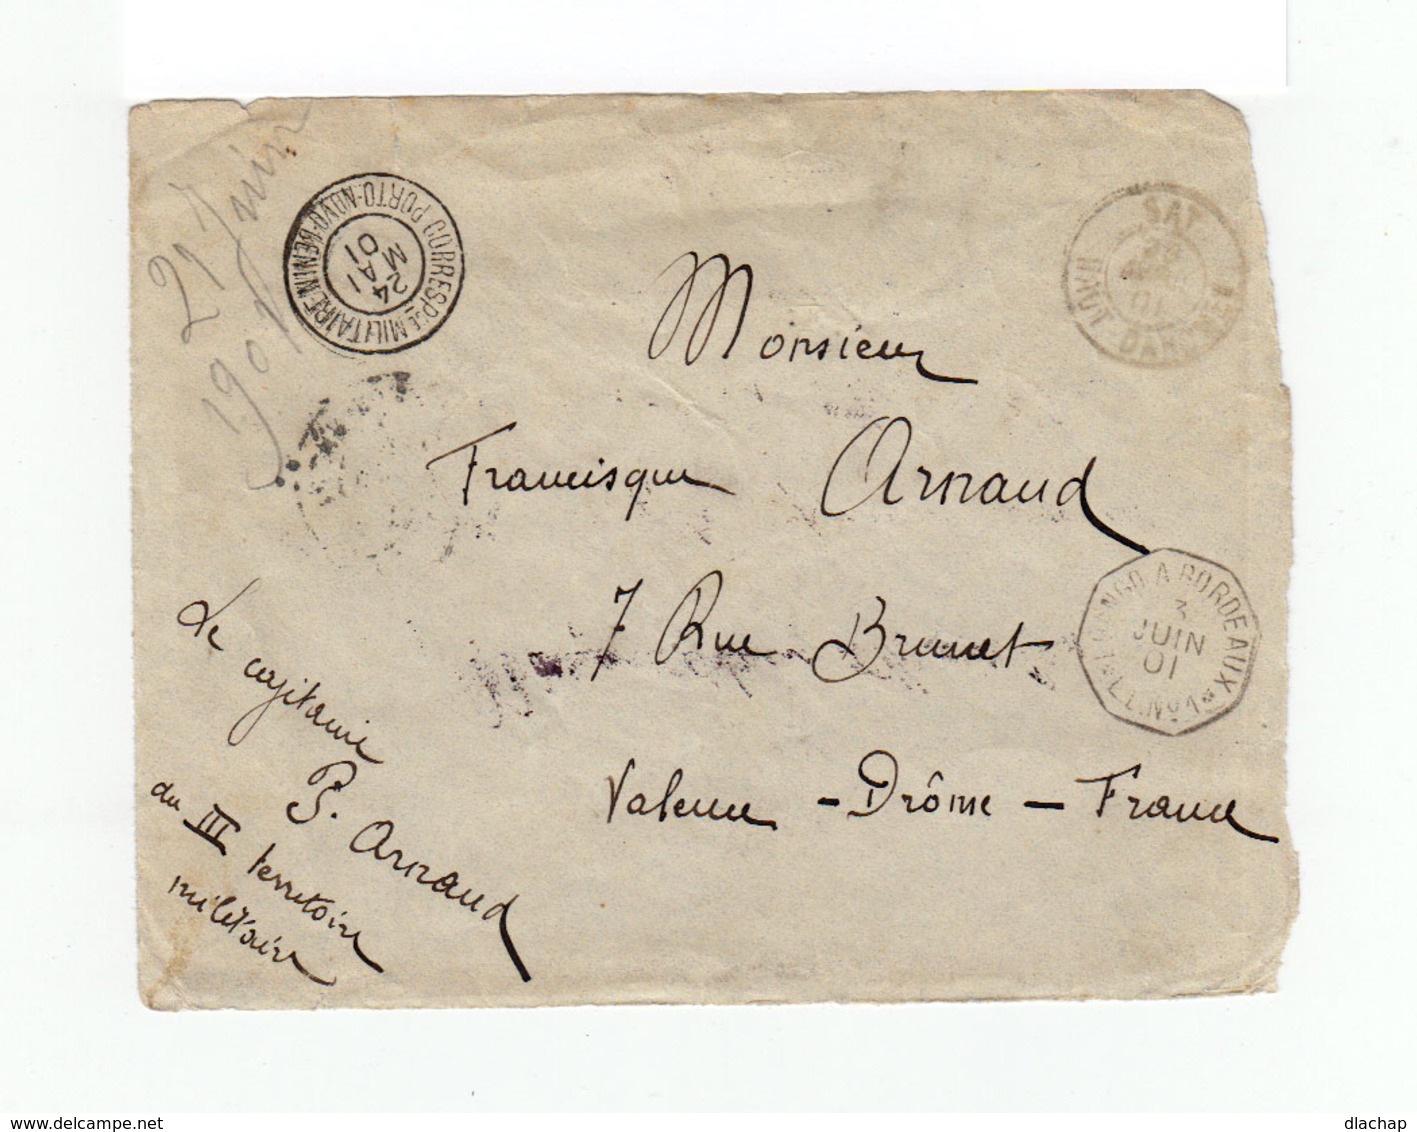 21 Juin
1901
CORRESP.CE MILITAIRE
PORTO-NOVO-BENIN
24
MAI
01
SAY
HAUT DAHOMEY
Monsieur
Francisque Arnaud
7 Rue Brunet
Valence - Drôme - France
CONGO A BORDEAUX
3
JUIN
01
Le capitaine
P. Arnaud
du III territoire
militaire
delcampe.net
dlachap